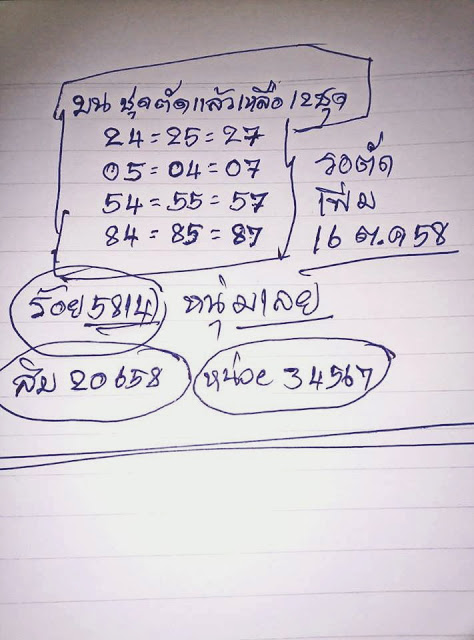 บน ชุดตัดแล้วเหลือ 12ชุด
24=25=27
05=04=07
54=55=57
84=85=87
รอตัด
เพิ่ม
16 ต.ค 58
ร้อย 5814
หนุ่มเลย
สิบ 20658
หน่วย 34567